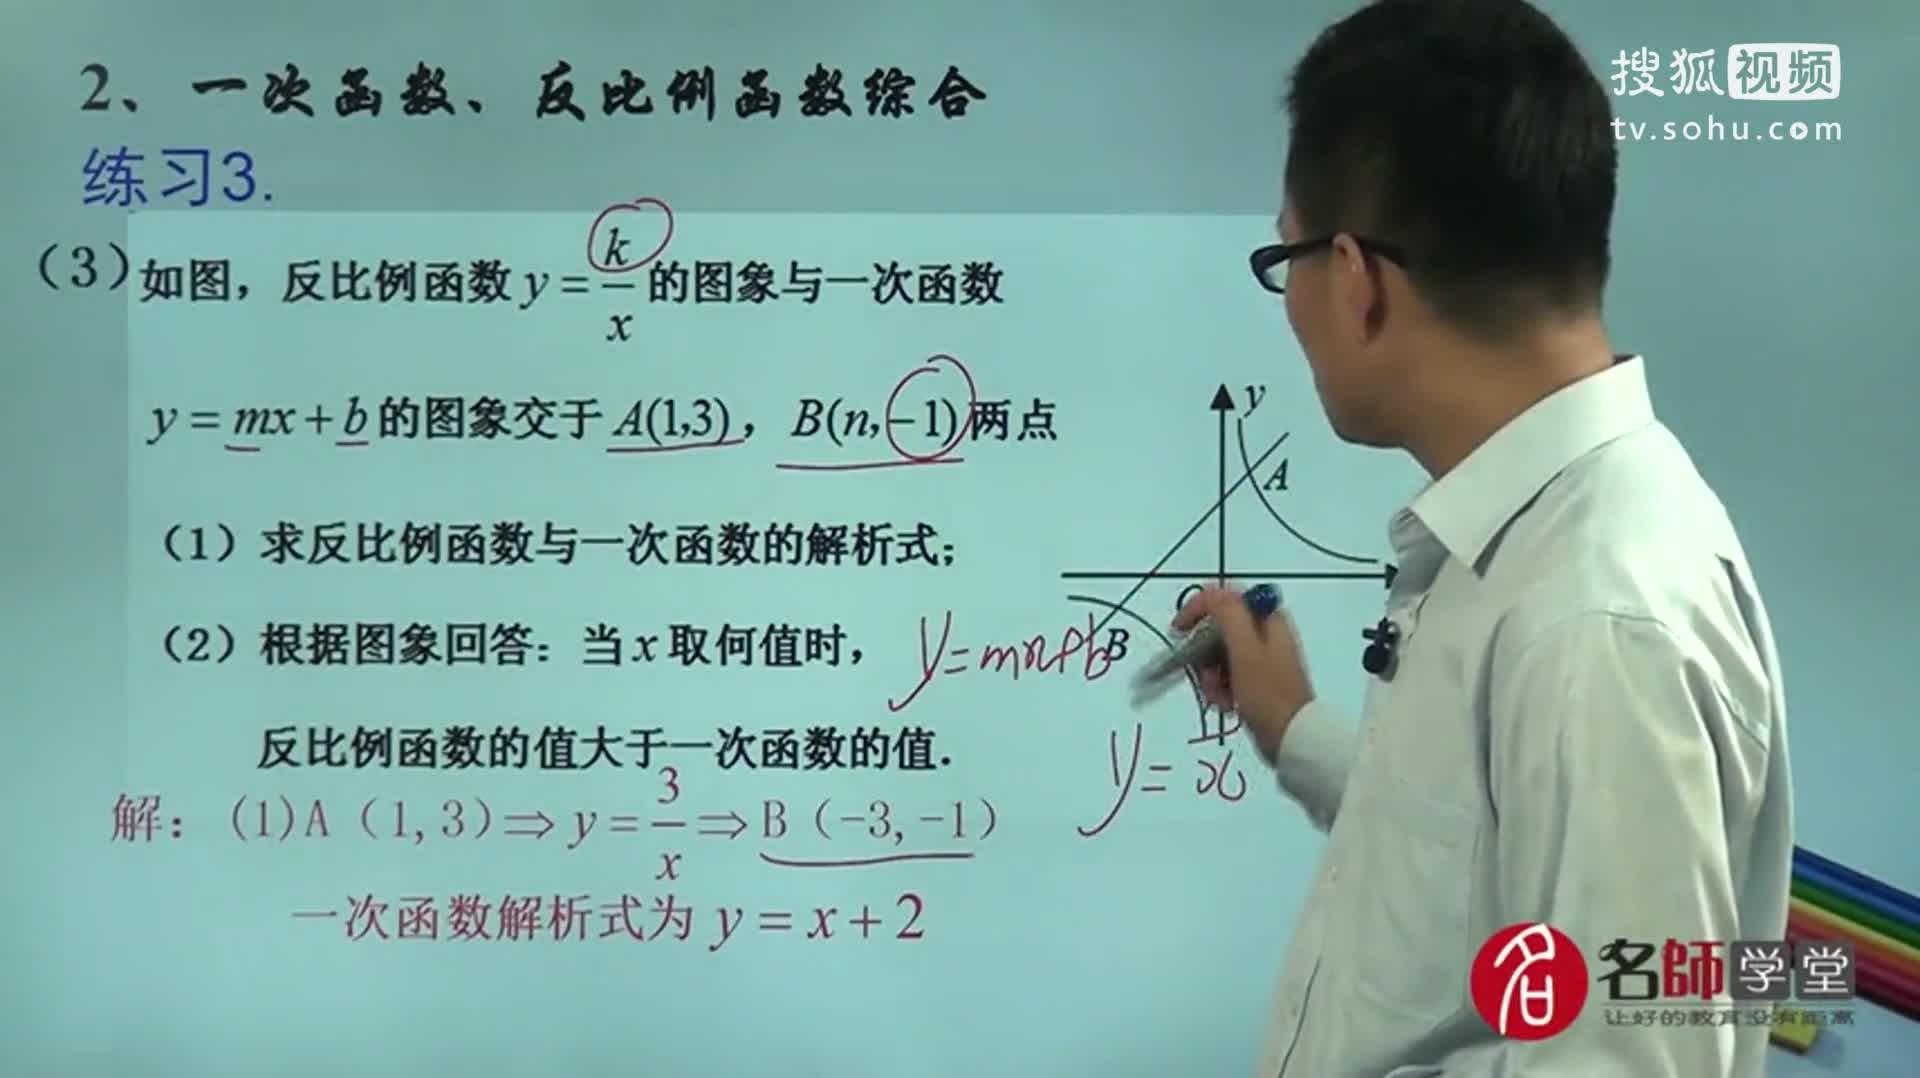 搜狐视频
tv.sohu.com
2、一次函数、反比例函数综合
练习3.
（3）如图，反比例函数 y = k/x 的图象与一次函数
y = mx + b 的图象交于 A(1,3)，B(n,-1) 两点
（1）求反比例函数与一次函数的解析式；
（2）根据图象回答：当 x 取何值时，
反比例函数的值大于一次函数的值.
解：(1)A（1,3）⇒ y = 3/x ⇒ B（-3,-1）
一次函数解析式为 y = x + 2
y
A
B
y=mx+b
y=
x
名
名師学堂
让好的教育没有距离